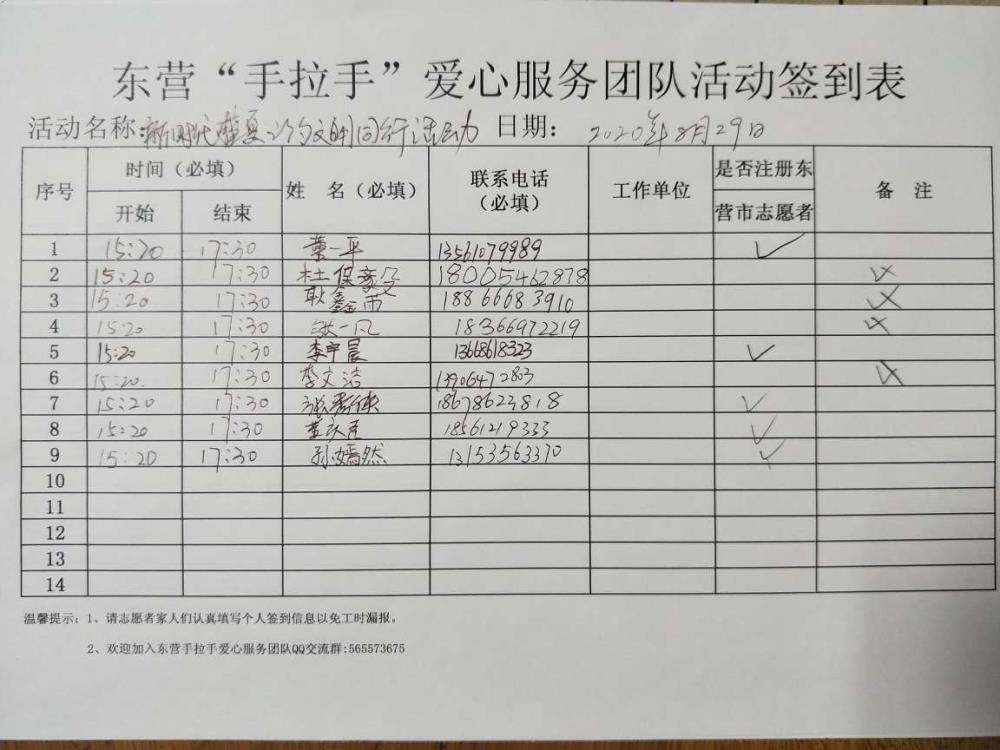 东营“手拉手”爱心服务团队活动签到表
活动名称:新时代 文明同行活动 日期: 2020年8月29日
序号 时间（必填） 姓 名（必填） 联系电话（必填） 工作单位 是否注册东营市志愿者 备 注
开始 结束
1 15:20 17:30 董一平 13561079989 ✓
2 15:20 17:30 杜保豪 18005462878
3 15:20 17:30 耿鑫雨 18866683910
4 15:20 17:30 一凡 18366972219
5 15:20 17:30 李宇晨 13668618323 ✓
6 15:20 17:30 李文洁 13906472803
7 15:20 17:30 张秀侠 18678623818 ✓
8 15:20 17:30 18561219333 ✓
9 15:20 17:30 孙嫣然 13153563370 ✓
10
11
12
13
14
温馨提示：1、请志愿者家人们认真填写个人签到信息以免工时漏报。
2、欢迎加入东营手拉手爱心服务团队QQ交流群:565573675